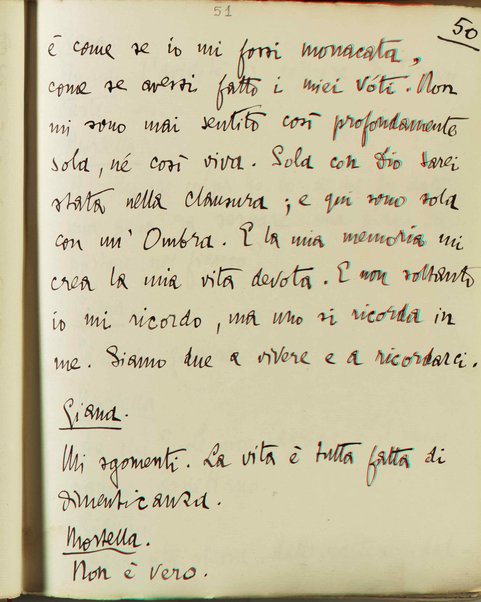 51
50
è come se io mi fossi monacata,
come se avessi fatto i miei vóti. Non
mi sono mai sentito così profondamente
sola, né così viva. Sola con Dio sarei
stata nella clausura; e qui sono sola
con un' Ombra. E la mia memoria mi
crea la mia vita devota. E non soltanto
io mi ricordo, ma uno si ricorda in
me. Siamo due a vivere e a ricordarci.
Giana.
Mi sgomenti. La vita è tutta fatta di
dimenticanza.
Mortella.
Non è vero.